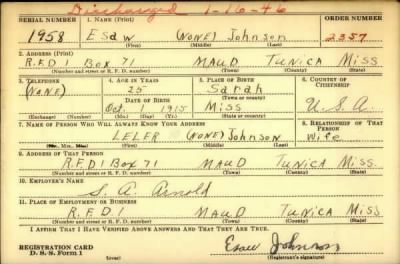 Discharged 1-16-46
SERIAL NUMBER 1. Name (Print) ORDER NUMBER
1958 Esaw (NONE) Johnson 2357
(First) (Middle) (Last)
2. Address (Print)
R.F.D 1 Box 71 MAUD TUNICA MISS
(Number and street or R. F. D. number) (Town) (County) (State)
3. Telephone 4. Age in Years 5. Place of Birth 6. Country of Citizenship
(NONE) 25 Sarah
Date of Birth (Town or county)
Oct 1915 Miss U.S.A.
(Exchange) (Number) (Mo.) (Day) (Yr.) (State or country)
7. Name of Person Who Will Always Know Your Address 8. Relationship of That Person
LELER (NONE) Johnson Wife
(Mr., Mrs., Miss) (First) (Middle) (Last)
9. Address of That Person
R.F.D1 Box 71 MAUD TUNICA MISS.
(Number and street or R. F. D. number) (Town) (County) (State)
10. Employer's Name
S. A. Arnold
11. Place of Employment or Business
R.F.D. 1 MAUD TUNICA MISS
(Number and street or R. F. D. number) (Town) (County) (State)
I Affirm That I Have Verified Above Answers and That They Are True.
REGISTRATION CARD
D. S. S. Form 1 Esaw Johnson
(Registrant's signature)